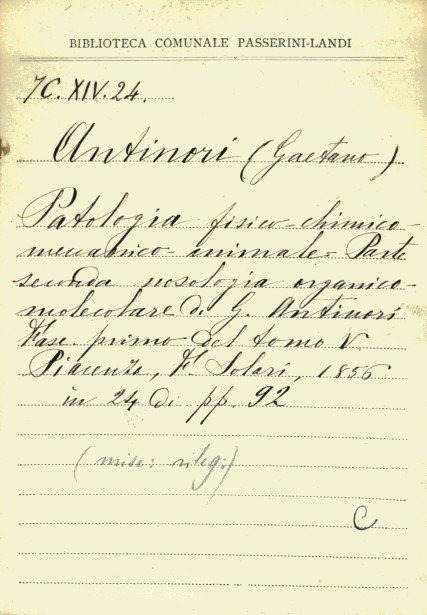 BIBLIOTECA COMUNALE PASSERINI-LANDI
7C. XIV. 24.
Antinori (Gaetano)
Patologia fisico-chimico-
meccanico animale = Parte
seconda nosologia organico-
molecolare di G. Antinori
Fasc. primo del tomo V.
Piacenza, F. Solari, 1856
in 24 di pp. 92
(misc: rileg:)
C